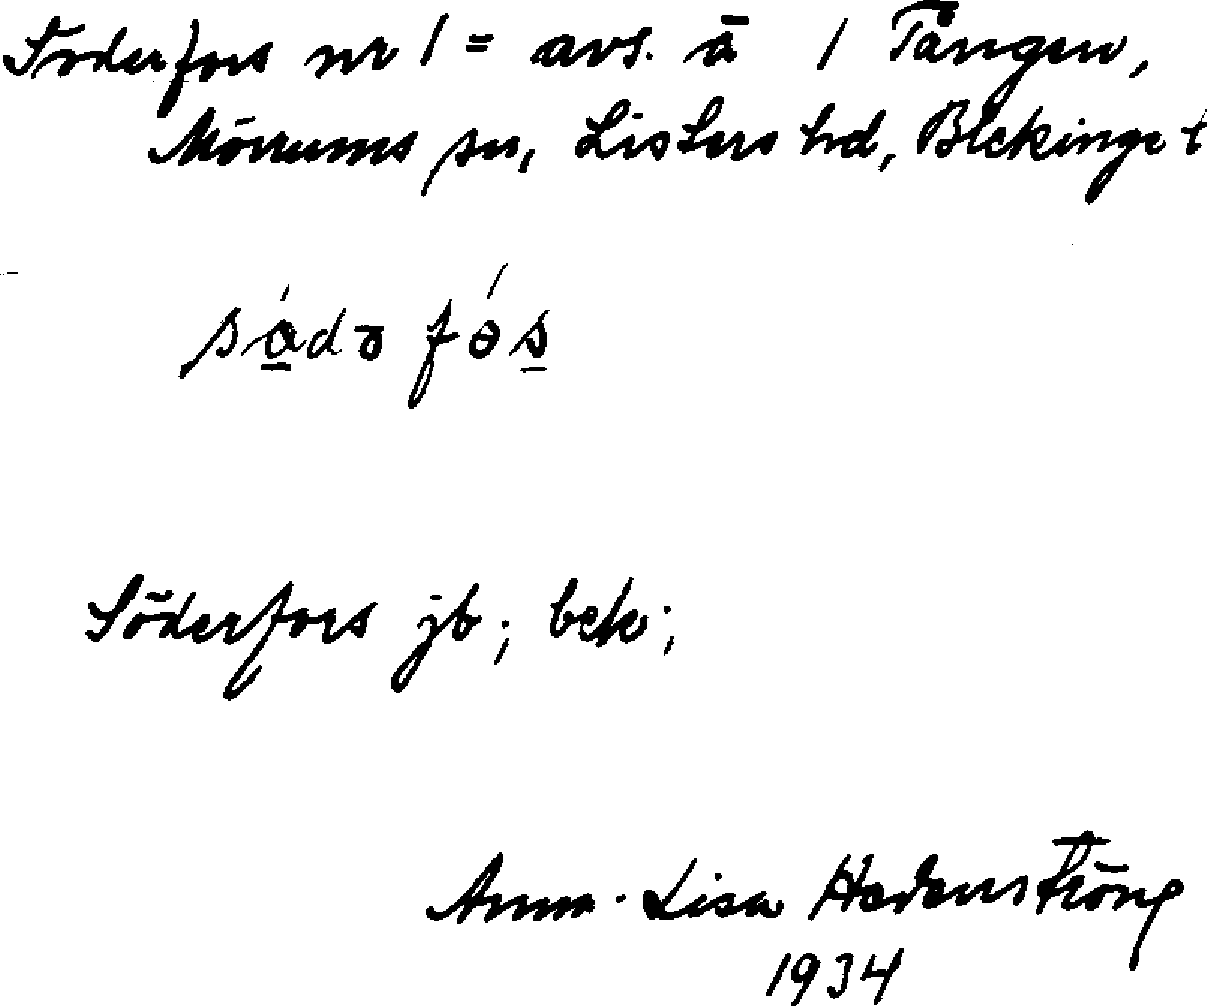 Söderfors nr 1 = avs. å 1 Tången,
Mörrums sn, Listers hd, Blekinge l
Söderfors jb; bek;
Anna-Lisa Hedenström
1934